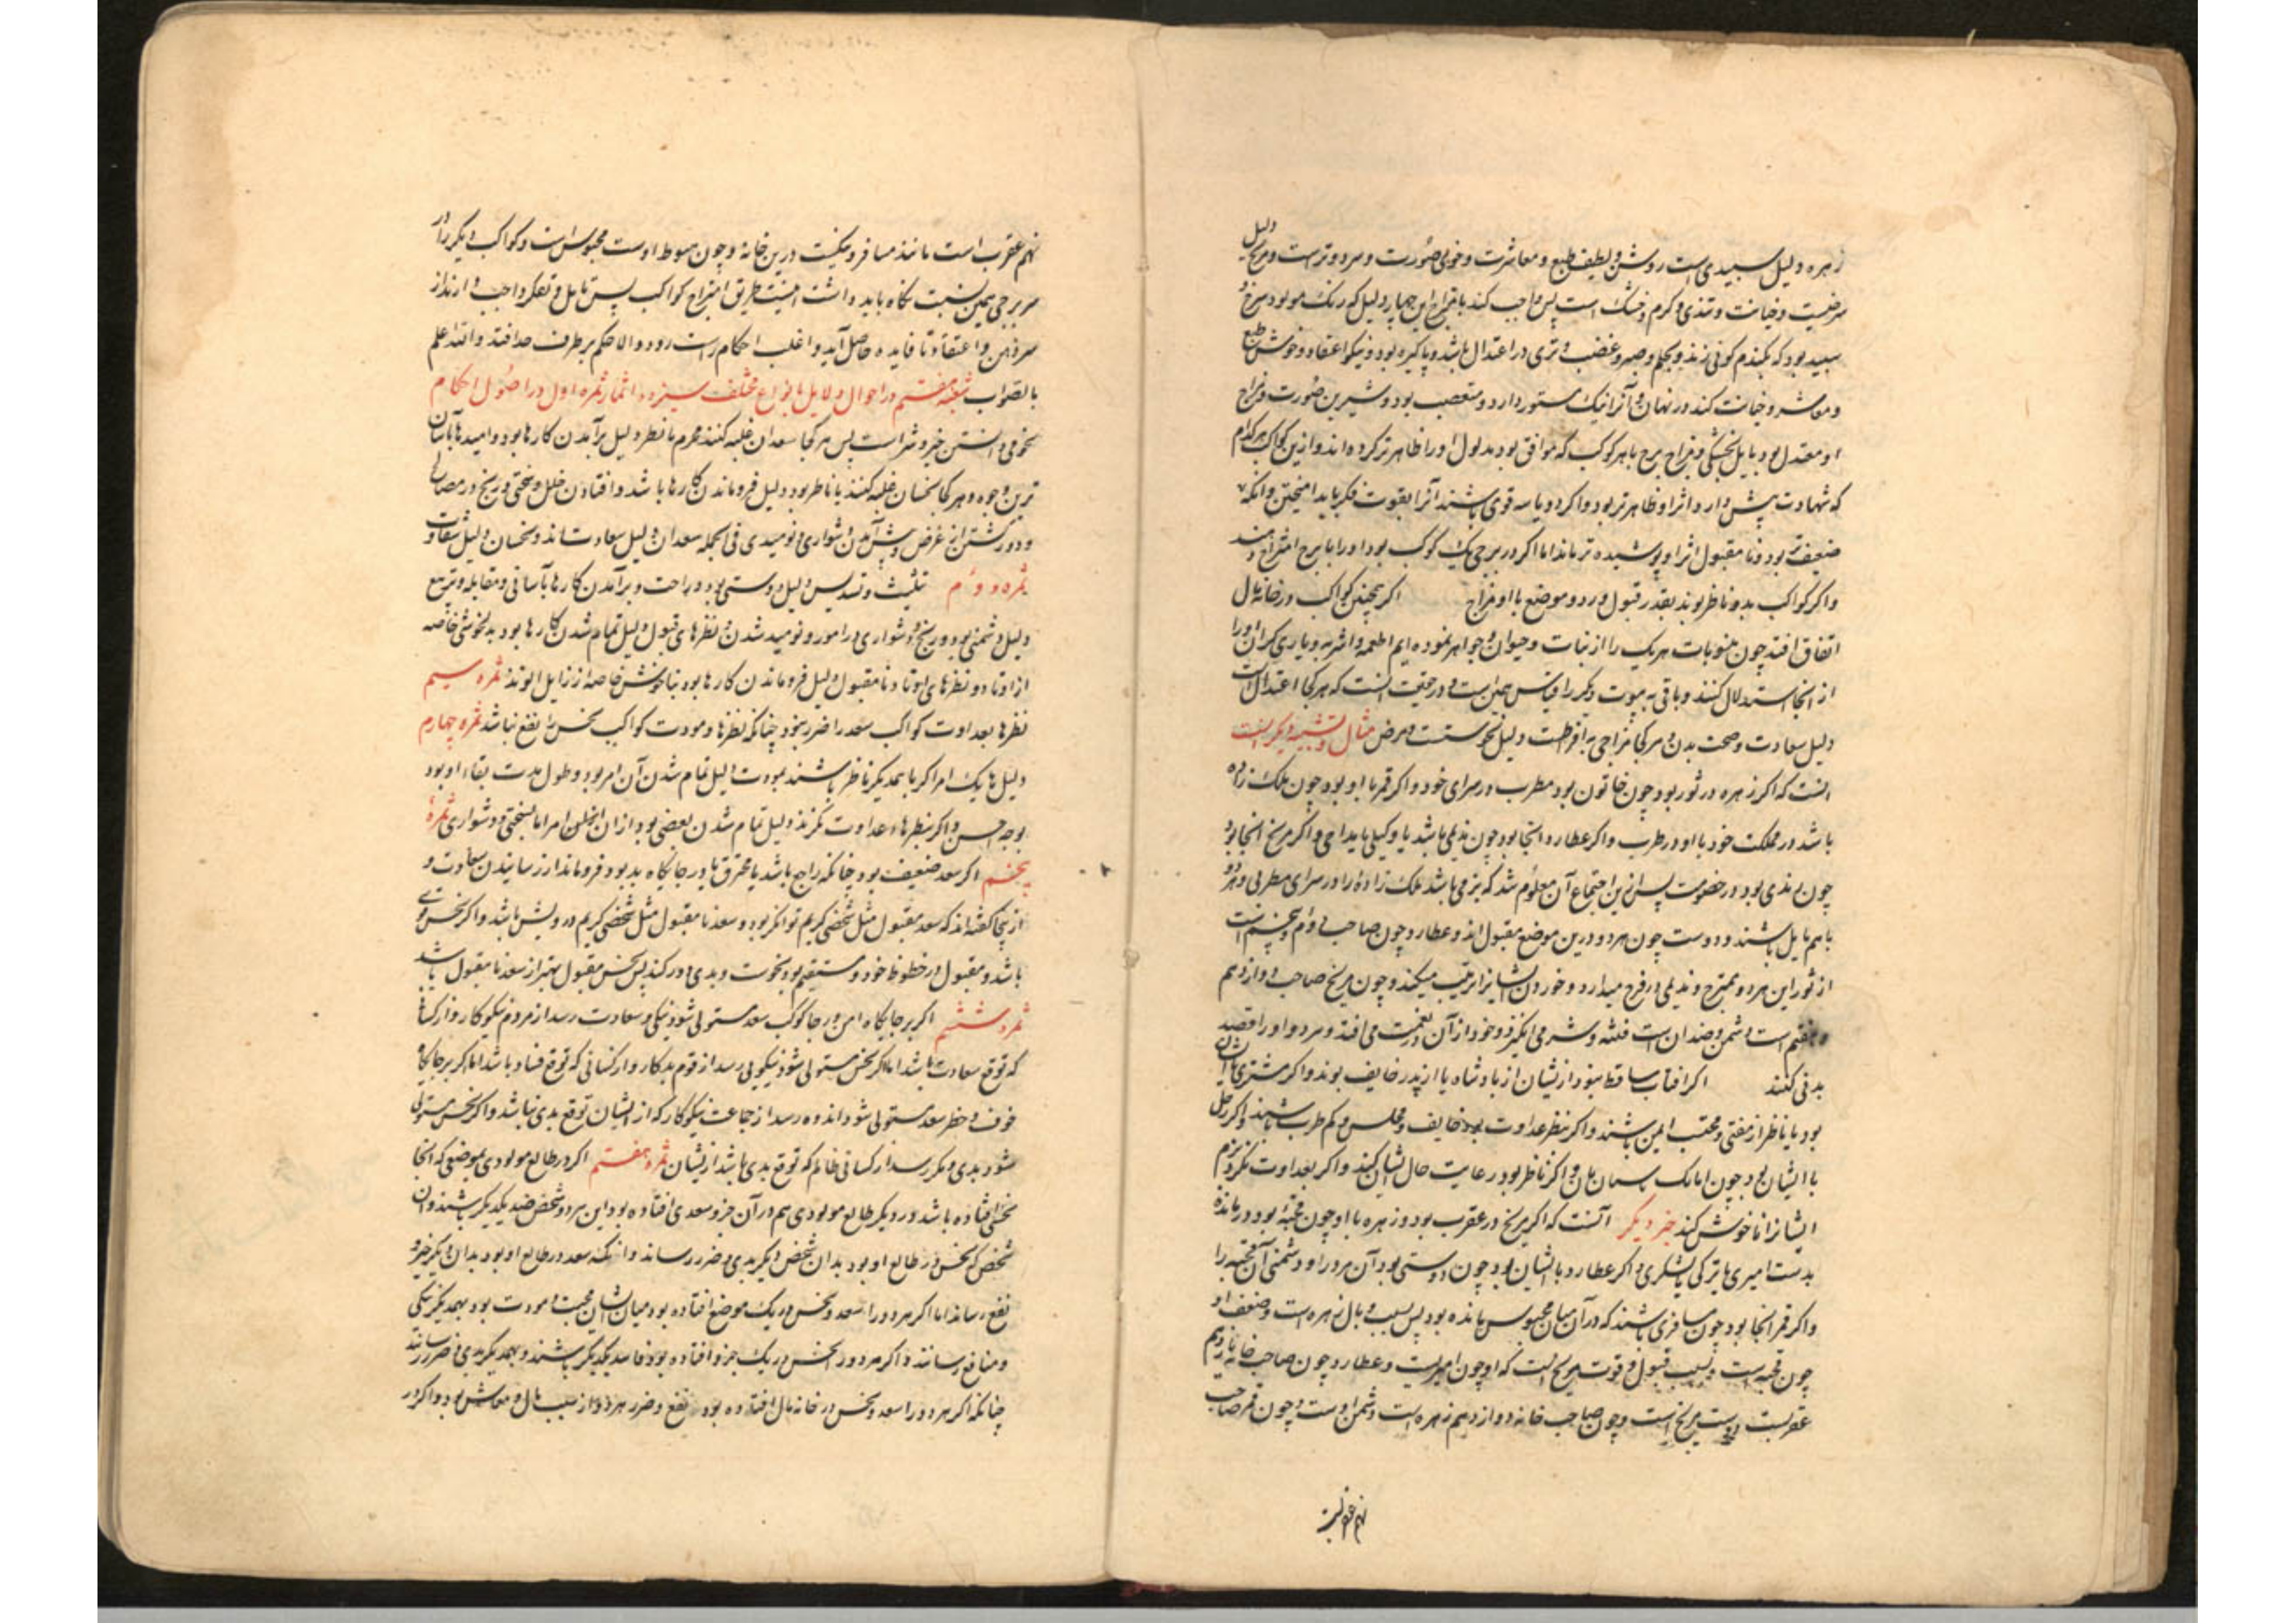 زهره دلیل سپیدی است روشن و لطیف طبع و معاشرت و خوبی صورت و سرد و تر است و مریخ دلیل
سرخیست و خیانت و تندی و گرم و خشک است پس واجب کند بامتزاج این چهار دلیل که رنگ مولود سرخ و
سپید بود که بگندم گونی زند و بحلم و صبر و غضب و تری در اعتدال باشد و پاکیزه بود و نیکو اعتقاد و خوش طبع
و معاشر و خیانت کند در نهان و آنرا نیک مستور دارد و متعصب بود و شیرین صورت و مزاج
او معتدل بود مایل بخشکی و مزاج برج با هر کوکب که موافق بود مدلول او را ظاهرتر کرده اند و ازین کواکب هر کدام
که شهادت بیش دارد اثر او ظاهرتر بود و اگر دو یا سه قوی باشند آنرا بقوت فکر باید امیختن و آنکه
ضعیف تر بود و نا مقبول اثر او پوشیده تر ماند اما اگر در برجی یک کوکب بود او را با برج امتزاج دهند
و اگر کواکب بدو ناظر بوند بقدر قبول و رد و موضع با او مزاج اگر همچنین کواکب در خانه مال
اتفاق افتد چون منسوبات هر یک را از نبات و حیوان و جواهر نموده ایم اطعمه و اشربه و یاری گران او را
از انجا استدلال کنند و باقی بیوت دیگر را قیاس همین است و در حقیقت انست که هر کجا اعتدال است
دلیل سعادت و صحت بدن و هر کجا مزاجی به افراطست دلیل نحوستست و مرض مثال و تشبیه دیگر اینست
انست که اگر زهره در ثور بود چون خاتون بود مطرب در سرای خود و اگر قمر با او بود چون ملک زاده
باشد در مملکت خود با او در طرب و اگر عطارد انجا بود چون ندیمی باشد یا وکیلی یا مداحی و اگر مریخ انجا بود
چون رندی بود در خصومت پس ازین اجتماع آن معلوم شد که بزمی باشد ملک زاده را در سرای مطربی و هر دو
باهم مایل باشند و دوست چون هر دو درین موضع مقبول اند و عطارد چون صاحب دوم و پنجم است
از ثور این هر دو ممتزج و ندیمی در فرح میدارد و خوردن ایشانرا ترتیب میکند و چون مریخ صاحب دوازدهم
و هفتم است دشمن و ضد ان است فتنه و شر می انگیزد و خود از آن در زحمت می افتد و هر دو او را قصد
بدنی کنند اگر افتاب ساقط بود از یشان از پادشاه یا از پدر خایف بوند و اگر مشتری با ایشان
بود یا ناظر از مفتی و محتسب ایمن باشند و اگر بنظر عداوت بود خایف و مجلس و کم طرب باشند و اگر زحل
با ایشان بود چون امالک سمان مان و اگر ناظر بود رعایت حال ایشان کند و اگر بعداوت نگرد بزم
ایشانرا ناخوش کند جز دیگر آنست که اگر مریخ در عقرب بود و زهره با او چون قحبه بود درمانده
بدست امیری یا ترکی یا لشکری و اگر عطارد با ایشان بود چون دوستی بود آن هر دو را و دشمنی آن قحبه را
و اگر قمر انجا بود چون مسافری باشند که در آن میان محبوس مانده بود پس بسبب وبال زهره است و ضعف او
چون قحبه است و بسبب قبول و قوت مریخ است که او چون امیریست و عطارد چون صاحب خانه یازدهم
عقربست دوست مریخ است و چون صاحب خانه دوازدهم زهره است دشمن اوست و چون قمر صاحب
نهم عقربست
نهم عقرب است مانند مسافرو میکیست درین خانه و چون هبوط اوست محبوس است و کواکب دیگر را در
هر برجی همین نسبت نگاه باید داشت اینست طریق امتزاج کواکب پس تامل و تفکر واجب دارند از
سر ذهن و اعتقاد تا فایده حاصل آید و اغلب احکام راست رود و الا حکم بر طرف صد افتد و الله اعلم
بالصواب شعبه هفتم در احوال دلایل بانواع مختلف سیزده اثمار ثمره اول در اصول احکام
نجومی دانستن خیر و شر است پس هر کجا سعدان غلبه کنند بجرم یا نظر دلیل برآمدن کارها بود و امیدها بآسان
ترین وجوه و هر کجا نحسان غلبه کنند یا ناظر بود دلیل فروماندن کارها باشد و افتادن خلل و سختی و رنج در مصالح
و دور گشتن از غرض و پیش آمدن دشواری و نومیدی فی الجمله سعدان دلیل سعادت اند و نحسان دلیل شقاوت
ثمره دوم تثلیث و تسدیس دلیل دوستی بود و راحت و برآمدن کارها بآسانی و مقابله و تربیع
دلیل دشمنی بود و رنج و دشواری در امور و نومید شدن و نظرهای قبول دلیل تمام شدن کارها بود بدلخوشی خاصه
از اوتاد و نظرهای اوتاد و نا مقبول دلیل فروماندن کارها بود بناخوش خاصه از زایل الوتد ثمره سیم
نظرها بعداوت کواکب سعد را ضرر بخود چنانکه نظرها و مودت کواکب نحس را نفع نباشد ثمره چهارم
دلیل ها یک امر اگر با همدیگر ناظر باشند بمودت دلیل تمام شدن آن امر بود و طول مدت بقاء او بود
بوجه احسن و اگر بنظرهاء عداوت نگرند دلیل تمام شدن بعضی بود از ان امر اما بسختی و دشواری ثمره
پنجم اگر سعد ضعیف بود چنانکه راجع باشد یا محترق یا در جایگاه بد بود فروماند از رسانیدن سعادت و
از پنجا گفته اند که سعد مقبول مثل شخصی کریم توانگر بود و سعد نا مقبول مثل شخصی کریم درویش باشد و اگر نحس قوی
باشد و مقبول و در خطوظ خود و مستقیم بود نحوست و بدی دور کند پس نحس مقبول بهتر از سعد نا مقبول باشد
ثمره ششم اگر بر جایگاه امن و رجا کوکب سعد مستولی شود نیکی و سعادت رسد از مردم نیکوکار و از کسانی
که توقع سعادت باشد اما اگر نحس مستولی شود نیکویی رسد از قوم بدکار و از کسانی که توقع فساد باشد اما اگر بر جایگاه
خوف و خطر سعد مستولی شود اندوه رسد از جماعت نیکوکار که از ایشان توقع بدی نباشد و اگر نحس مستولی
شود بدی و مکر رسد از کسانی ظالم که توقع بدی باشد از یشان ثمره هفتم اگر در طالع مولودی بموضعی که انجا
نحسی افتاده باشد و در دیگر طالع مولودی هم در آن جزو سعدی افتاده بود این هر دو شخص ضد یکدیگر باشند و ان
شخص که نحس در طالع او بود بدان شخص دیگر بدی و ضرر رساند و انکه سعد در طالع او بود بدان دیگر خیر و
نفع رساند اما اگر هر دو را سعد و نحس در یک موضع افتاده بود میان ایشان محبت و مودت بود بهمدیگر نیکی
و منافع رسانند و اگر هر دو را نحس در یک جزو افتاده بود فاسد یکدیگر باشند و بهمدیگر بدی و ضرر رسانند
چنانکه اگر هر دو را سعد و نحس در خانه مال افتاده بود نفع و ضرر هر دو از سبب مال و معاش بود و اگر در